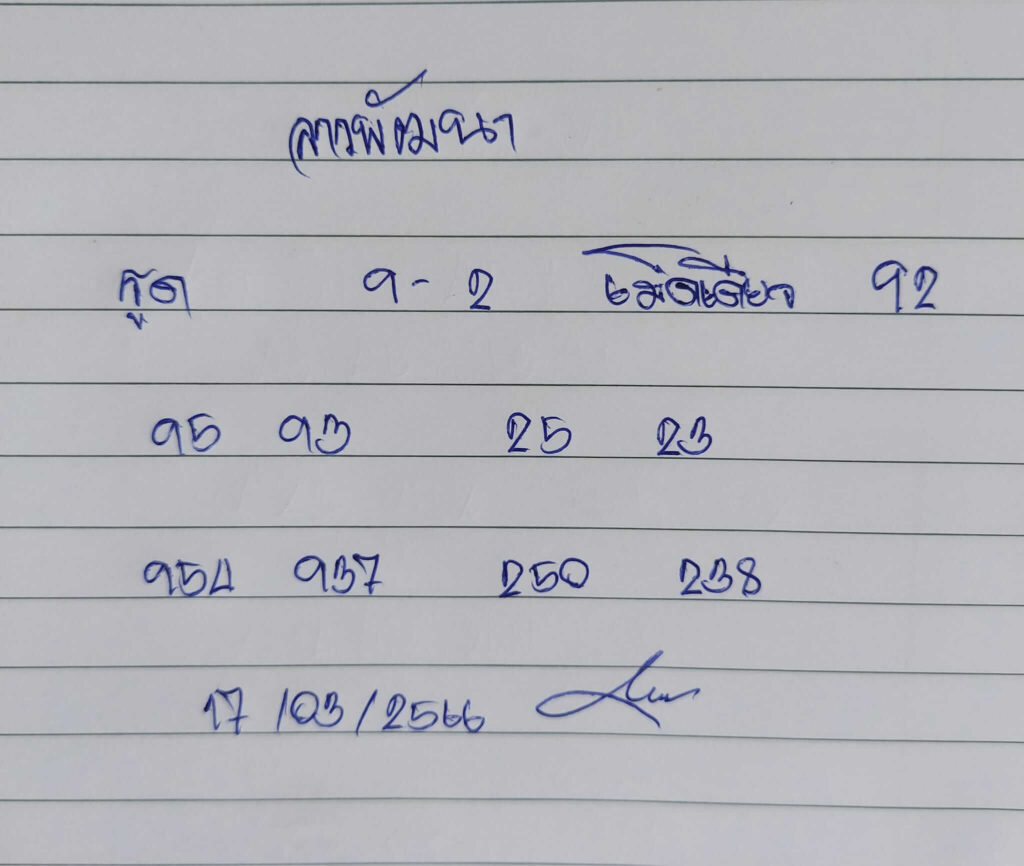 ลาวพัฒนา
รูด 9 - 2 เม็ดเดียว 92
95 93 25 23
954 937 250 238
17 /03 /2566